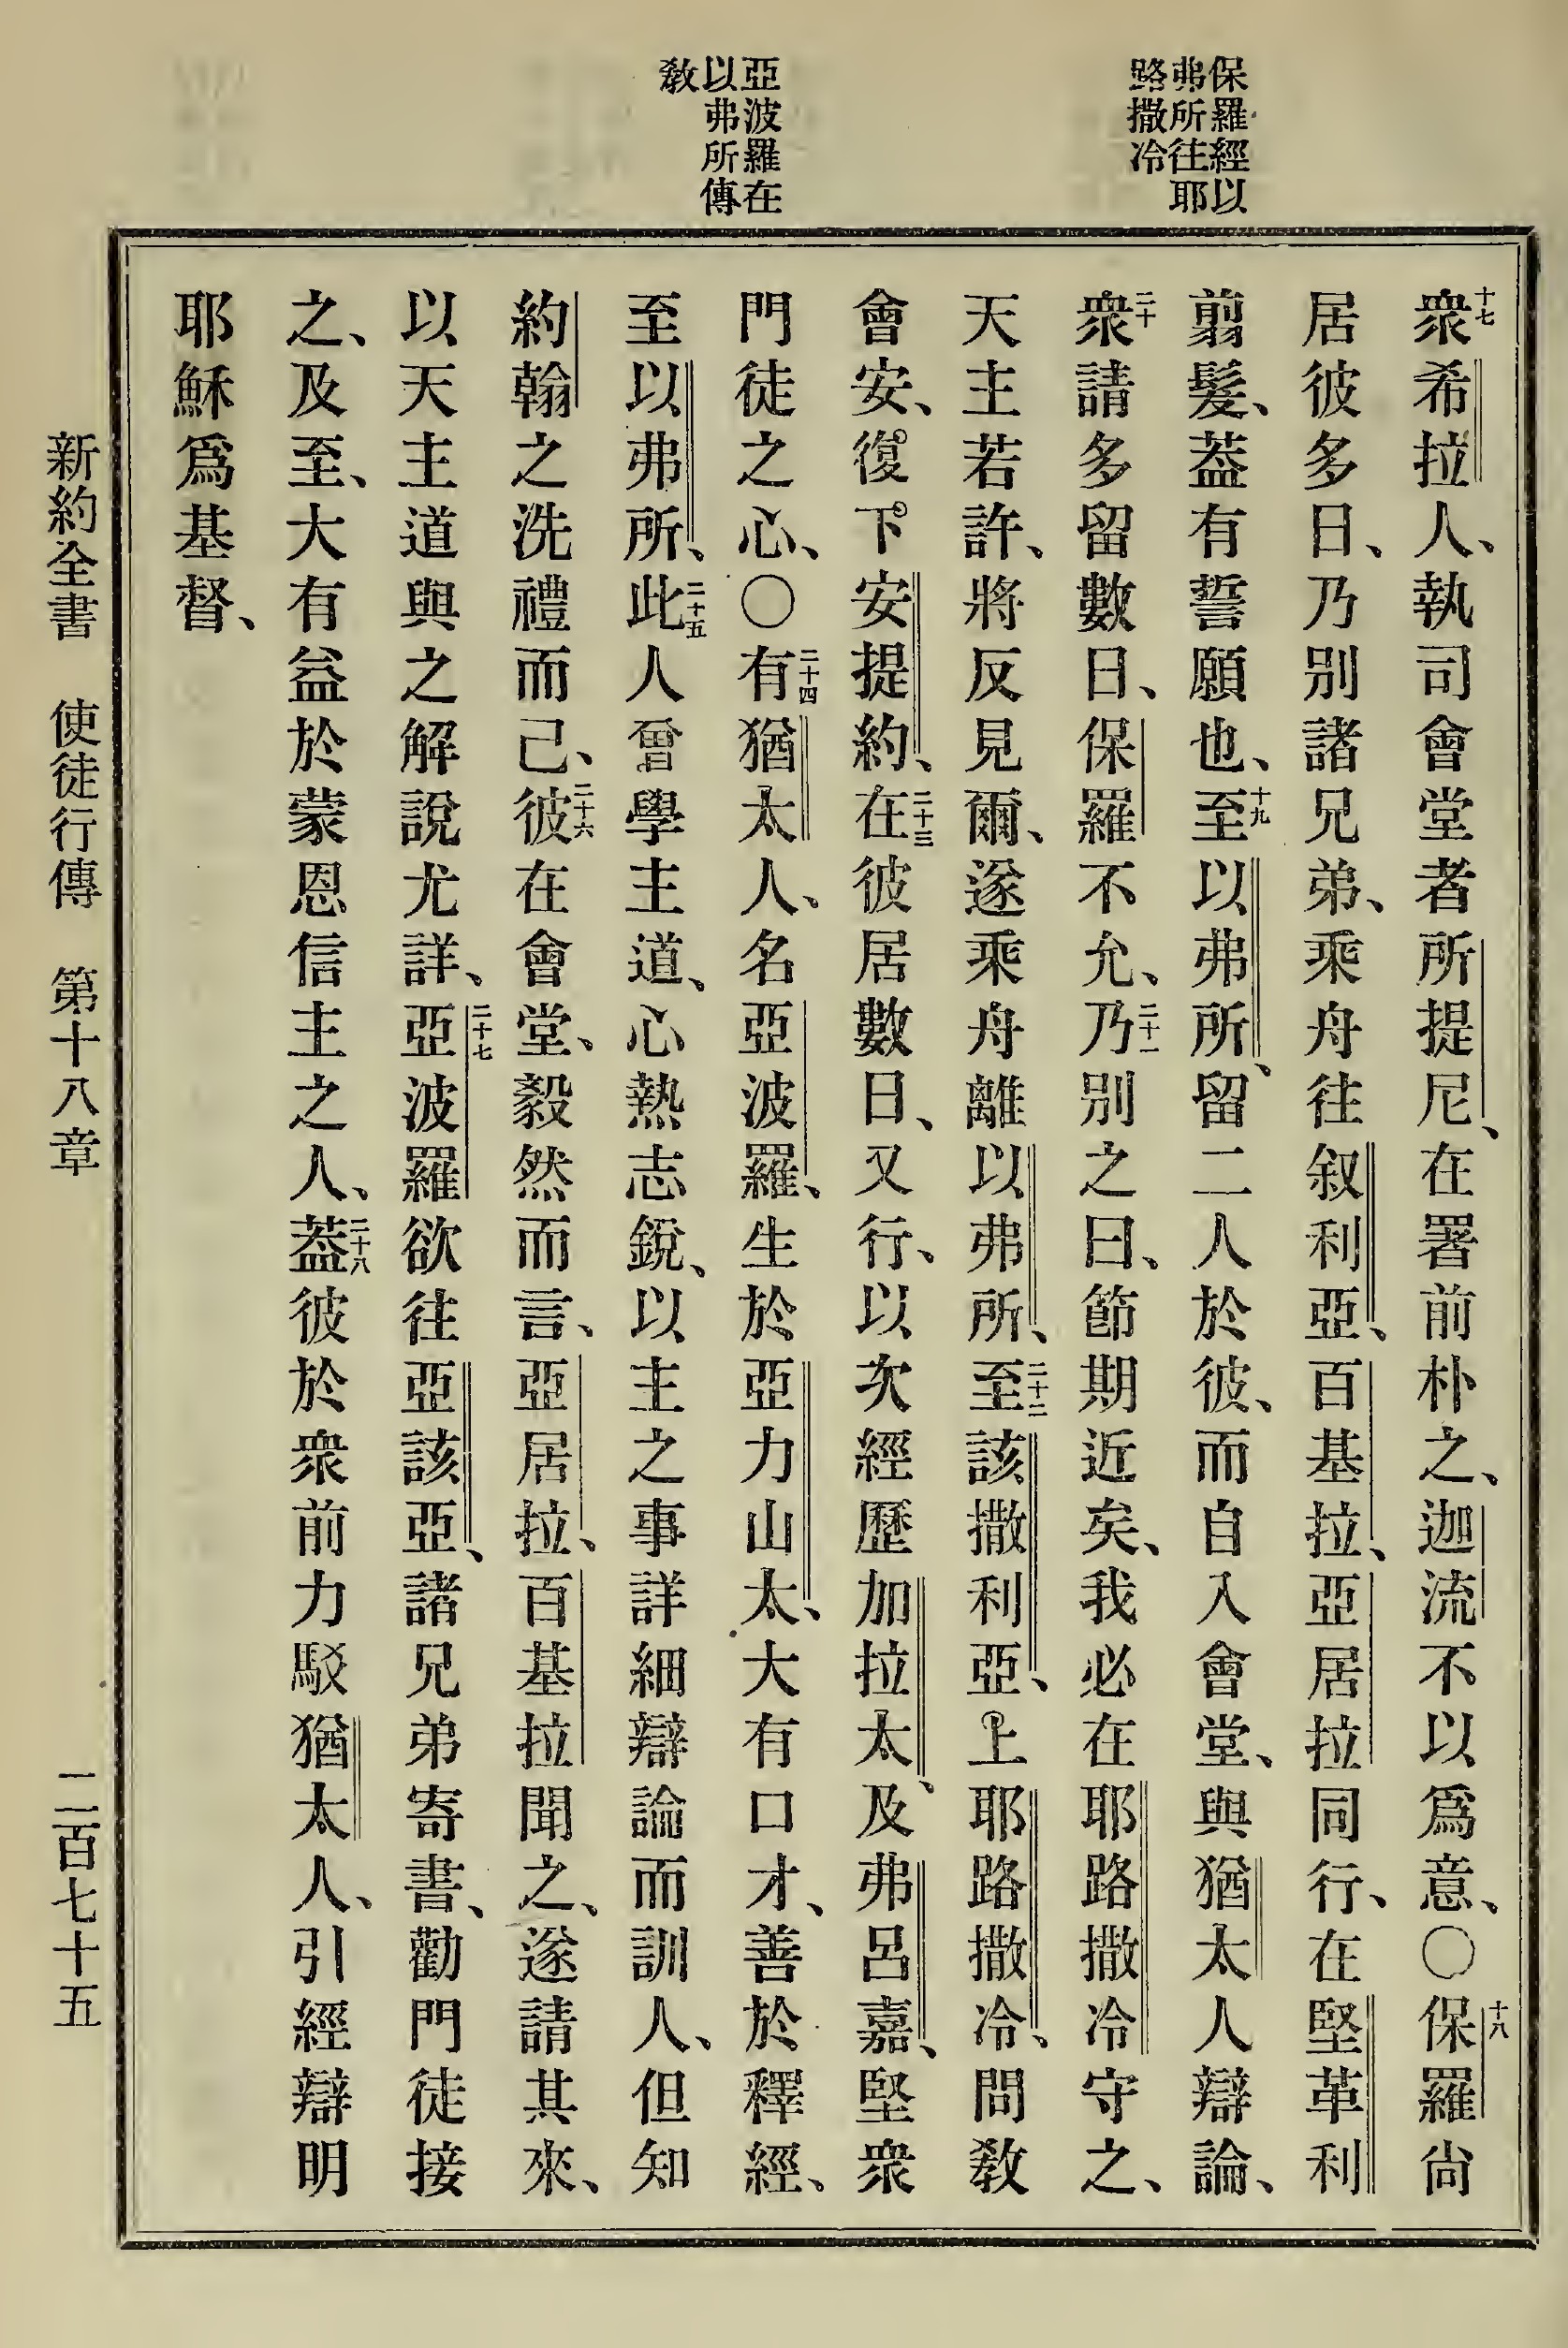 保羅經以
弗所往耶
路撒冷
亞波羅在
以弗所傳
敎
十七衆希拉人、執司會堂者所提尼、在署前朴之、迦流不以爲意、〇十八保羅尙
居彼多日、乃別諸兄弟、乘舟往叙利亞、百基拉、亞居拉同行、在堅革利
翦髮、葢有誓願也、十九至以弗所、留二人於彼、而自入會堂、與猶太人辯論、
二十衆請多留數日、保羅不允、二十一乃別之曰、節期近矣、我必在耶路撒冷守之、
天主若許、將反見爾、遂乘舟離以弗所、二十二至該撒利亞、上耶路撒冷、問敎
會安、復下安提約、二十三在彼居數日、又行、以次經歷加拉太、及弗呂嘉、堅衆
門徒之心、〇二十四有猶太人、名亞波羅、生於亞力山太、大有口才、善於釋經、
至以弗所、二十五此人曾學主道、心熱志銳、以主之事詳細辯論而訓人、但知
約翰之洗禮而已、二十六彼在會堂、毅然而言、亞居拉、百基拉聞之、遂請其來、
以天主道與之解說尤詳、二十七亞波羅欲往亞該亞、諸兄弟寄書、勸門徒接
之、及至、大有益於蒙恩信主之人、二十八葢彼於衆前力駁猶太人、引經辯明
耶穌爲基督、
新約全書 使徒行傳 第十八章 二百七十五